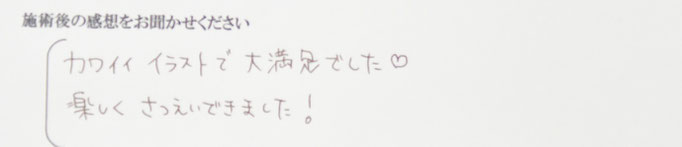 施術後の感想をお聞かせください
カワイイ イラストで 大満足でした♡
楽しく さつえいできました!